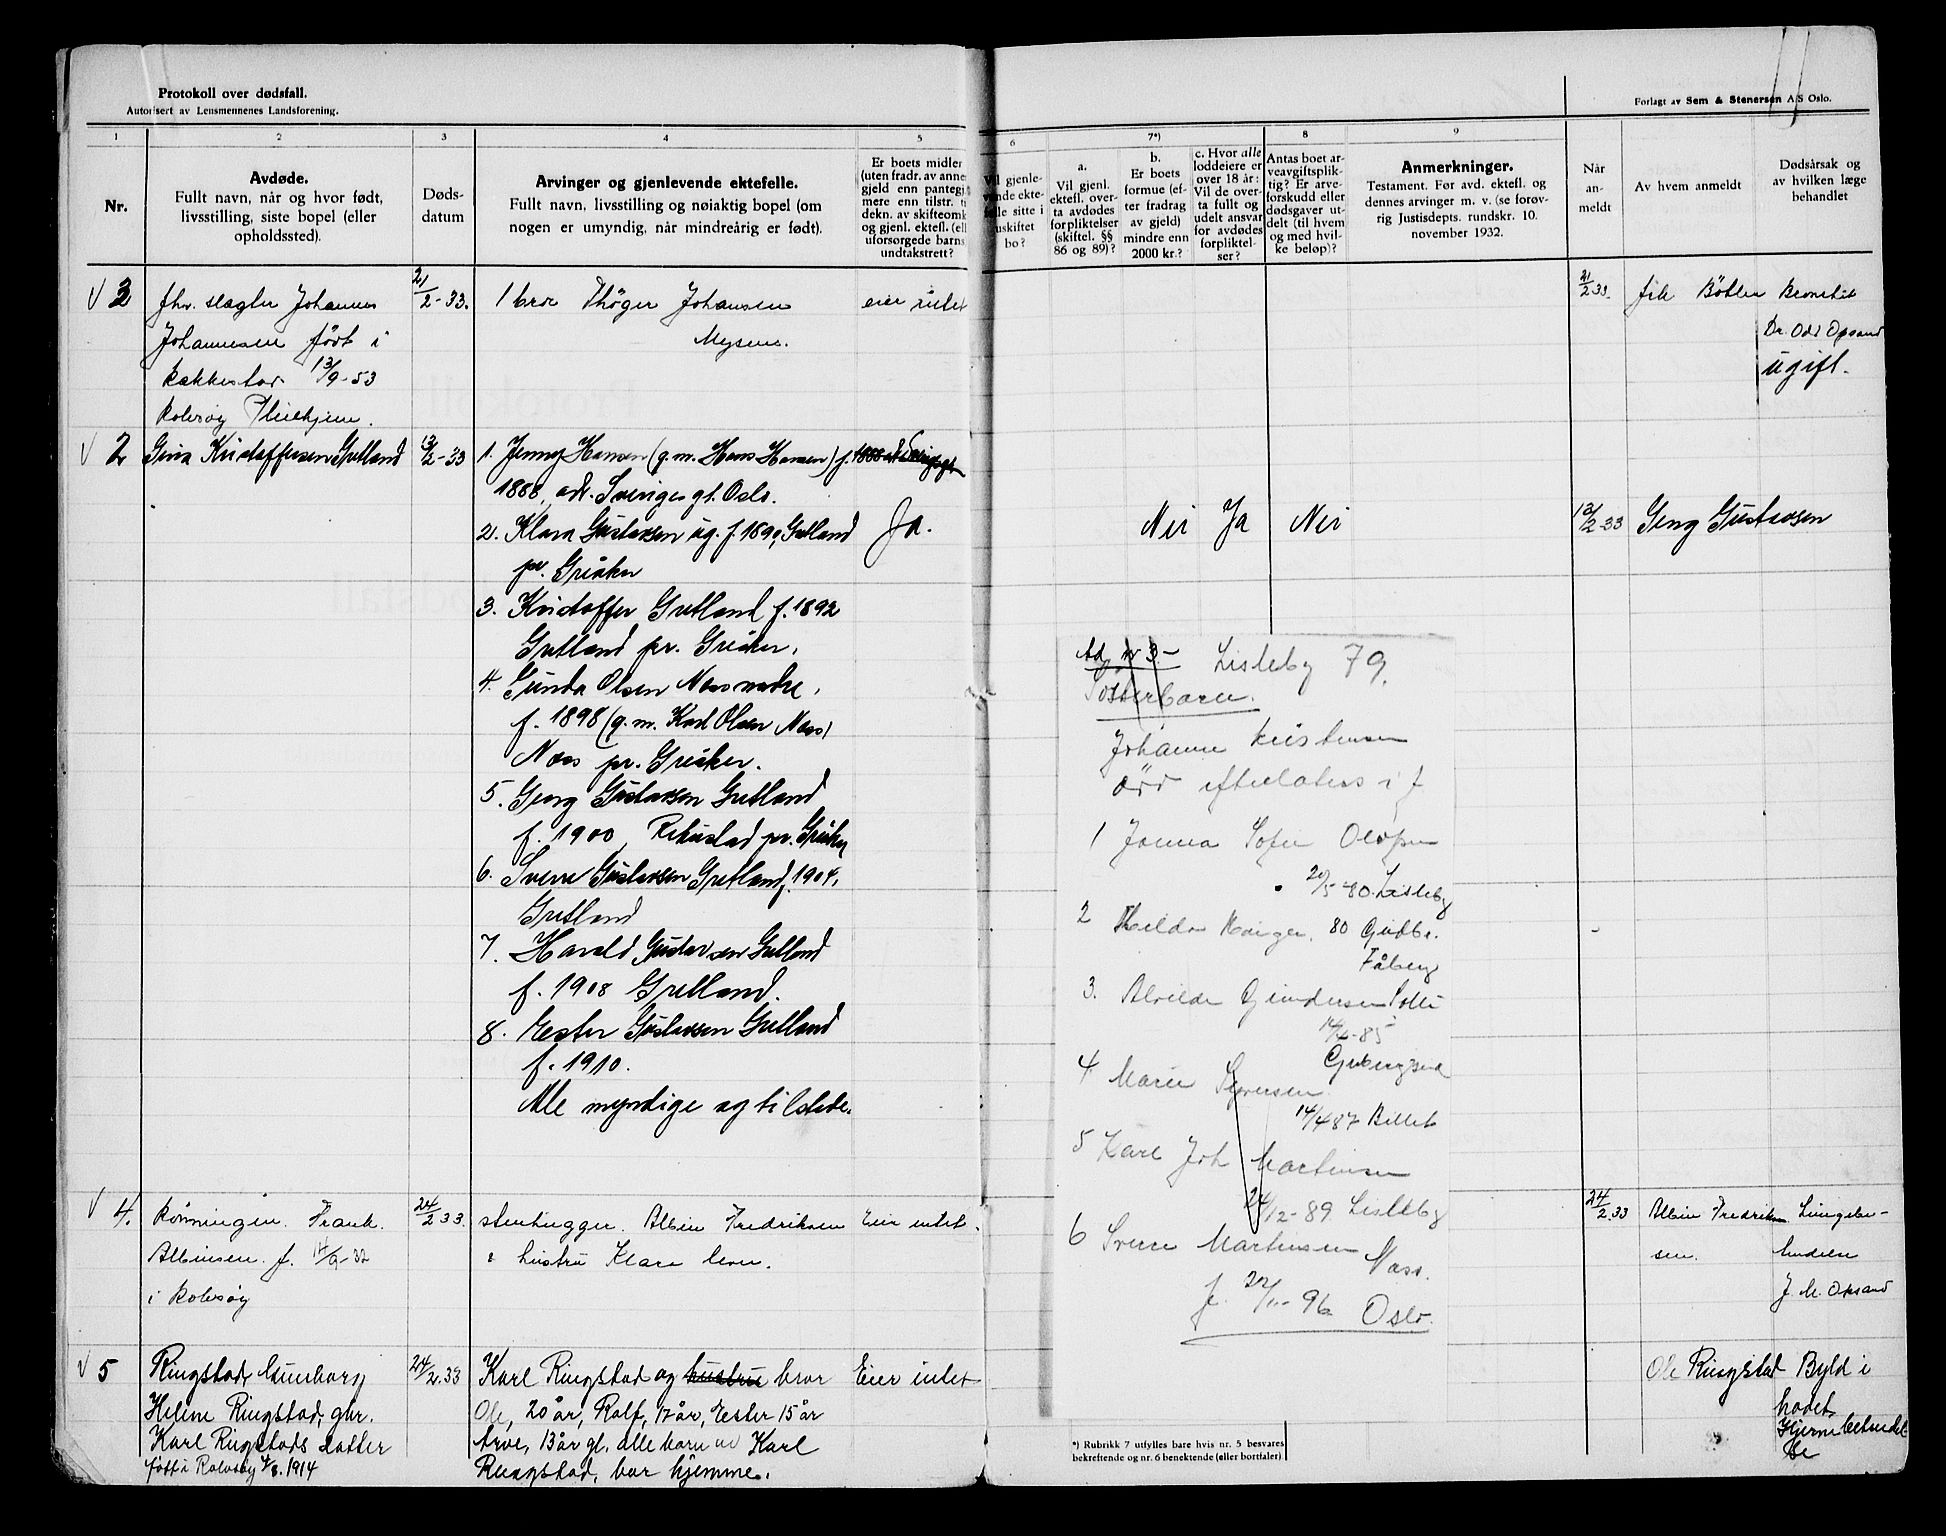 Protokoll over dødsfall.
Autorisert av Lensmennenes Landsforening.
Forlagt av Sem & Stenersen A/S Oslo.
1
Nr.
2
Avdøde.
Fullt navn, når og hvor født,
livsstilling, siste bopel (eller
opholdssted).
3
Døds-
datum
4
Arvinger og gjenlevende ektefelle.
Fullt navn, livsstilling og nøiaktig bopel (om
nogen er umyndig, når mindreårig er født).
5
Er boets midler
(uten fradr. av annen
gjeld enn pantegj
mere enn tilstr. ti
dekn. av skifteomk
og gjenl. ektef. (ell
uforsørgede barns
undtakstrett?
6
Vil gjenle-
vende ekte-
felle sitte i
uskiftet
bo?
7*)
a.
Vil gjenl.
ektefl. over-
ta avdødes
forpliktelser
(skiftel. §§
86 og 89)?
b.
Er boets
formue (ef-
ter fradrag
av gjeld)
mindre enn
2000 kr.?
c. Hvor alle
loddeiere er
over 18 år:
Vil de over-
ta fullt og
udelt ansvar
for avdødes
forpliktel-
ser?
8
Antas boet ar-
veavgiftsplik-
tig? Er arve-
forskudd eller
dødsgaver ut-
delt (til hvem
og med hvil-
ke beløp)?
9
Anmerkninger.
Testament. Før avd. ektefl. og
dennes arvinger m. v. (se forøv-
rig Justisdepts. rundskr. 10.
november 1932.
Når
an-
meldt
Av hvem anmeldt
Dødsårsak og
av hvilken læge
behandlet
√ 3
fhv. slagter Johannes
Johannesen født i
Rakkestad 13/9-53
Rolvsøy Pleiehjem.
21/2-33.
1 bror Thøger Johansen
Mysen.
eier intet
21/2 33.
Bronkit
Dr. Odd Opsand
ugift.
√ 2
Gina Kristoffersen Gretland
13/2-33
1. Jenny Hansen (g.m. Hans Hansen) f.
1888, adr. Sverigesgt. Oslo.
2. Klara Gustavsen ug. f. 1890, Gretland
pr. Greåker
3. Kristoffer Gretland f. 1892
Gretland pr. Greåker.
4. Gunda Olsen Næs nedre,
f. 1898 (g.m. Karl Olsen Næss)
Næss pr. Greåker.
5. Georg Gustavsen Gretland
f. 1900, pr. Greåker
6. Sverre Gustavsen Gretland, 1904,
Gretland
7. Harald Gustavsen Gretland
f. 1908 Gretland.
8. Ester Gustavsen Gretland
f. 1910.
Alle myndige og tilstede.
Ja.
Nei
Ja
Nei
13/2 33
Georg Gustavsen
Ad nr 3- Listeby 79.
Søsterbarn.
Johanne Kristensen
død efterlates i f
1 Janna Sofie Olsen
20/5-80. Listeby
2 Hilda 80 Gudbr.
Fåberg
3. Alvilde Gundersen
14/4-85
4 Marie Syversen
14/4 87 Billet
5 Karl Joh Martinsen
24/12-89 Listeby
6 Sverre Martinsen Næss.
f. 22/11-96 Oslo.
√ 4.
Rønningen. Frank.
Albinsen. f. 14/9-32
i Rolvsøy
24/2 33.
stenhugger. Albin Fredriksen
hustru Klara
Eier intet.
24/2.33
Albin Fredrik-
sen.
Lungebe-
tendelse
J. M. Opsand
√ 5
Ringstad, Gunborg
Helene Ringstad, gbr.
Karl Ringstads datter
født i Rolvsøy 4/8. 1914
24/2.33
Karl Ringstad og hustru bror
Ole, 20 år, Rolf, 17 år, Ester 15 år
Arve, 13 år gl. alle barn av Karl
Ringstad, bor hjemme.
Eier intet
Ole Ringstad
Byld i
hodet
Hjernebetendel-
se
*) Rubrikk 7 utfylles bare hvis nr. 5 besvares
bekreftende og nr. 6 benektende (eller bortfaler)